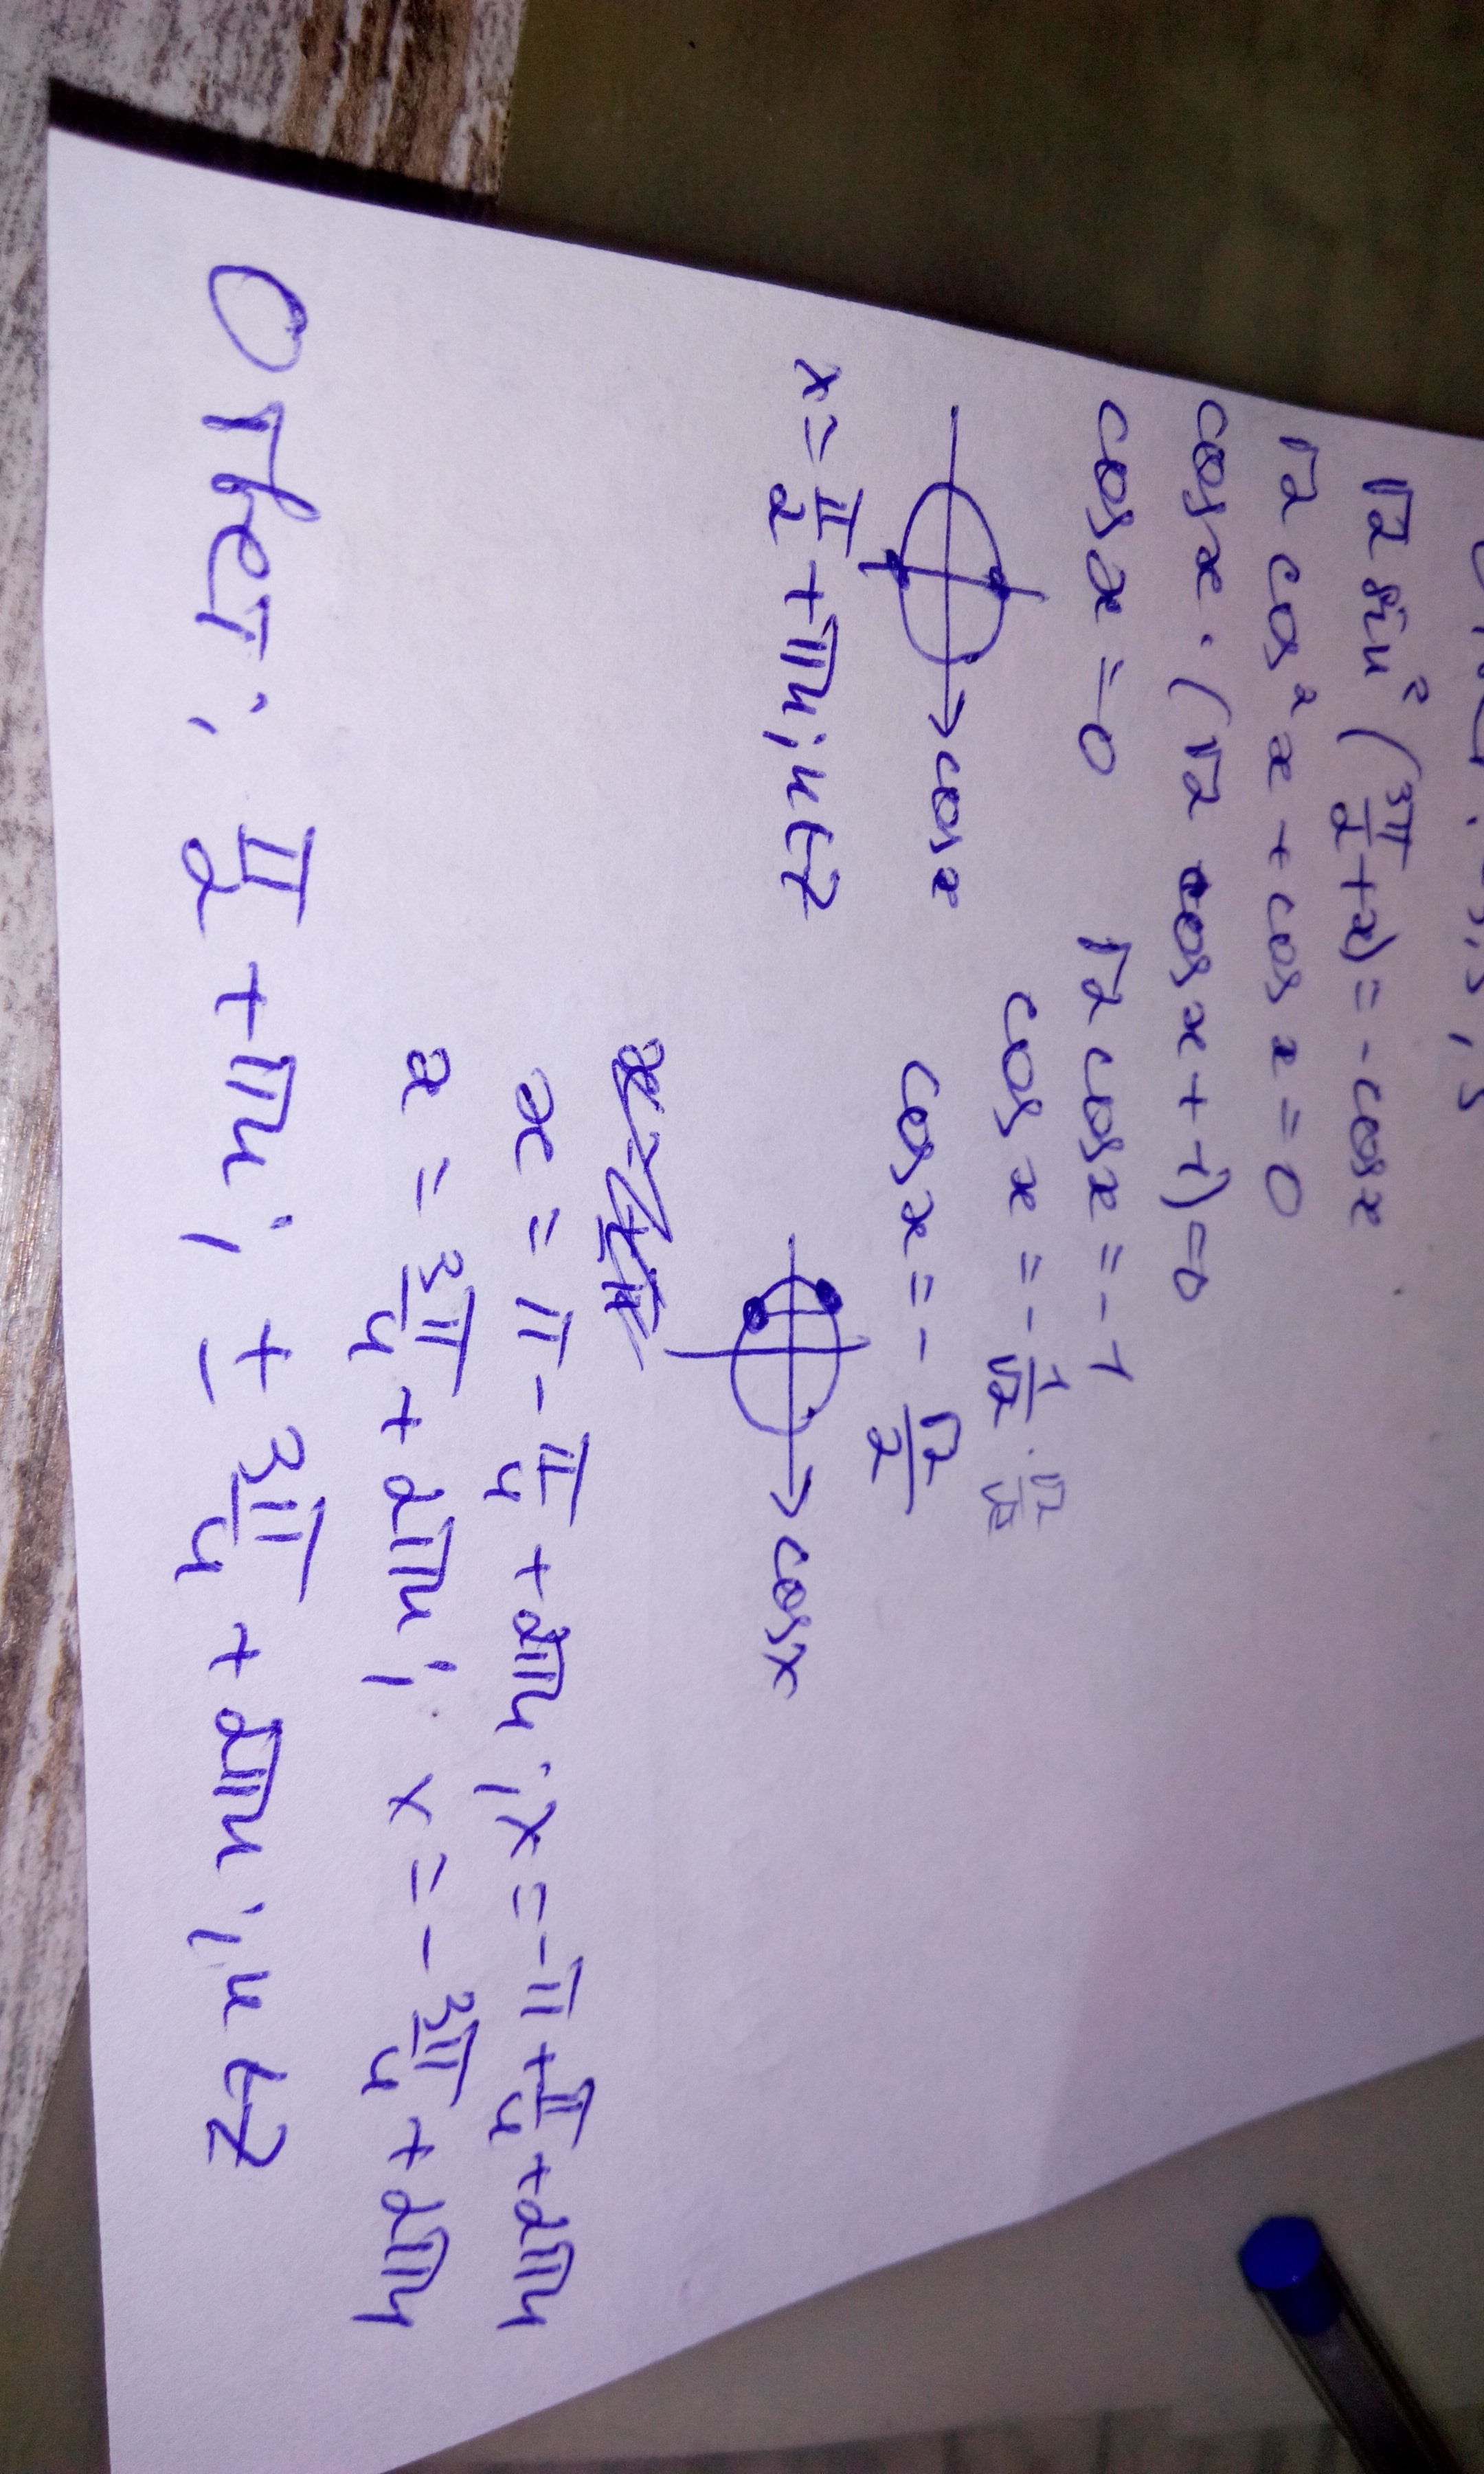 √2 sin² (3π/2 + x) = - cos x
√2 cos² x + cos x = 0
cos x · (√2 cos x + 1) = 0
cos x = 0
√2 cos x = - 1
cos x = - 1/√2 · √2/√2
cos x = - √2/2
→ cos x
→ cos x
x = π/2 + πn; n ∈ Z
x = π - π/4 + 2πn; x = -π + π/4 + 2πn
x = 3π/4 + 2πn; x = - 3π/4 + 2πn
Ответ: π/2 + πn; ± 3π/4 + 2πn; n ∈ Z